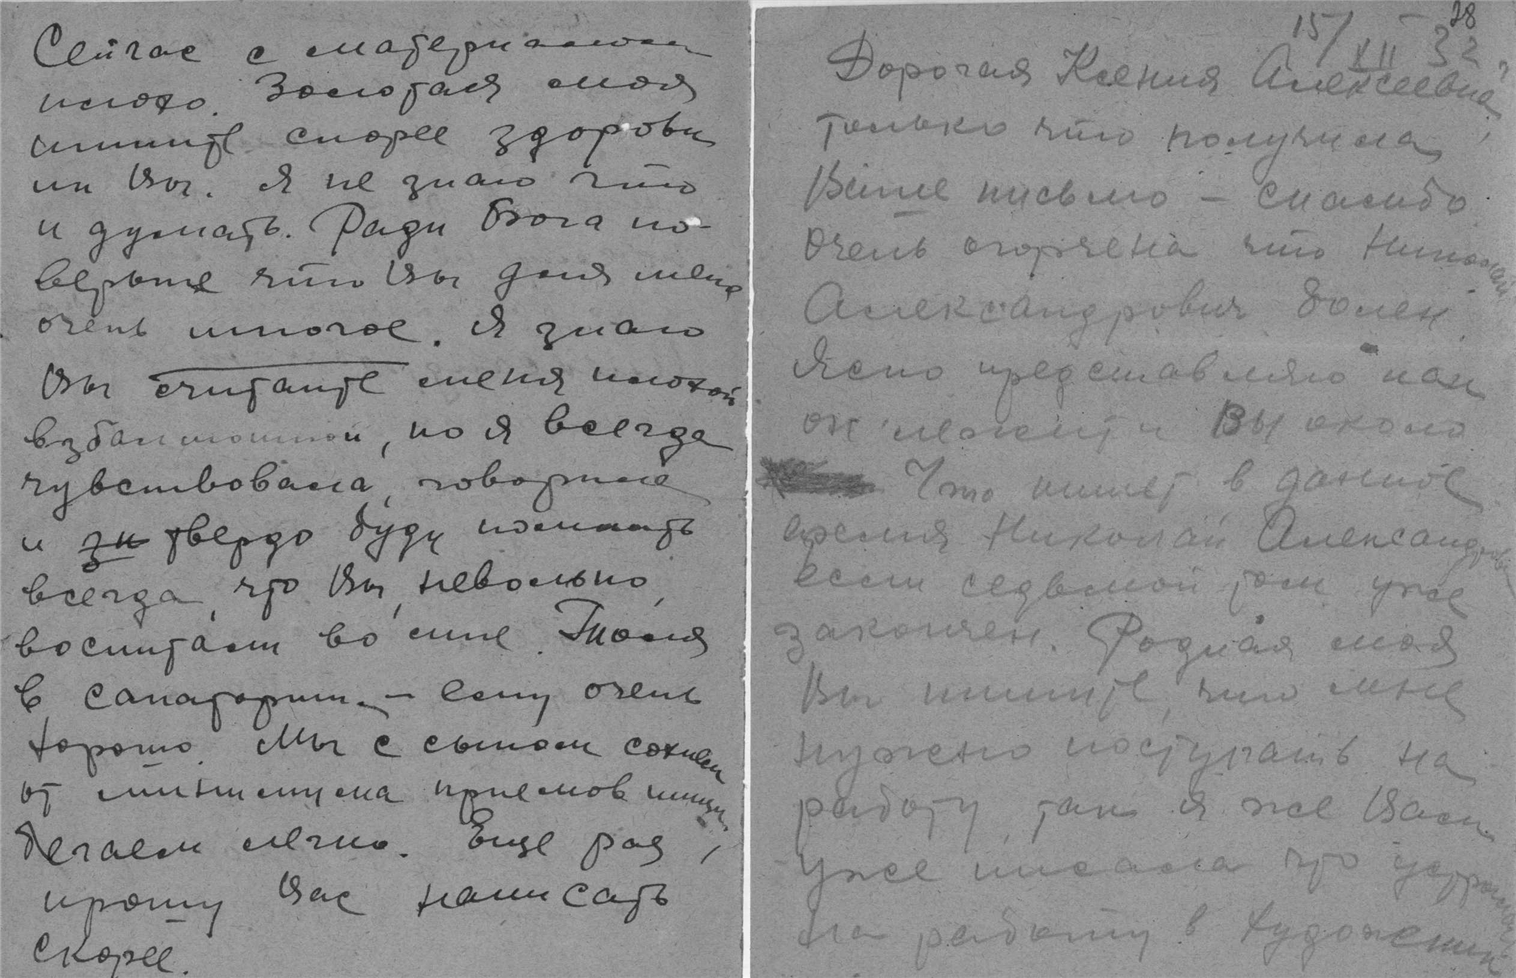 Сейчас с материалом
плохо. Золотая моя
пишите скорее здоровы
ли Вы. Я не знаю что
и думать. Ради Бога по-
верьте что Вы для меня
очень многое. Я знаю
Вы считаете меня плохой
взбалмошной, но я всегда
чувствовала, говорила
и зн твердо буду помнить
всегда, что Вы, невольно,
воспитали во мне. Толя
в санатории – ему очень
хорошо. Мы с сыном сохнем
от минимума приемов пищи,
бегаем легко. Еще раз,
прошу Вас написать
скорее.
28
15/XII 32
Дорогая Ксения Алексеевна,
только что получила
Ваше письмо – спасибо
очень огорчена что Николай
Александрович болен.
Ясно представляю как
он лежит и Вы около
Что пишет в данное
время Николай Александрович
если седьмой том уже
закончен. Родная моя
Вы пишите, что мне
нужно поступать на
работу, так я же Вам
уже писала что устроилась
на работу в художествен